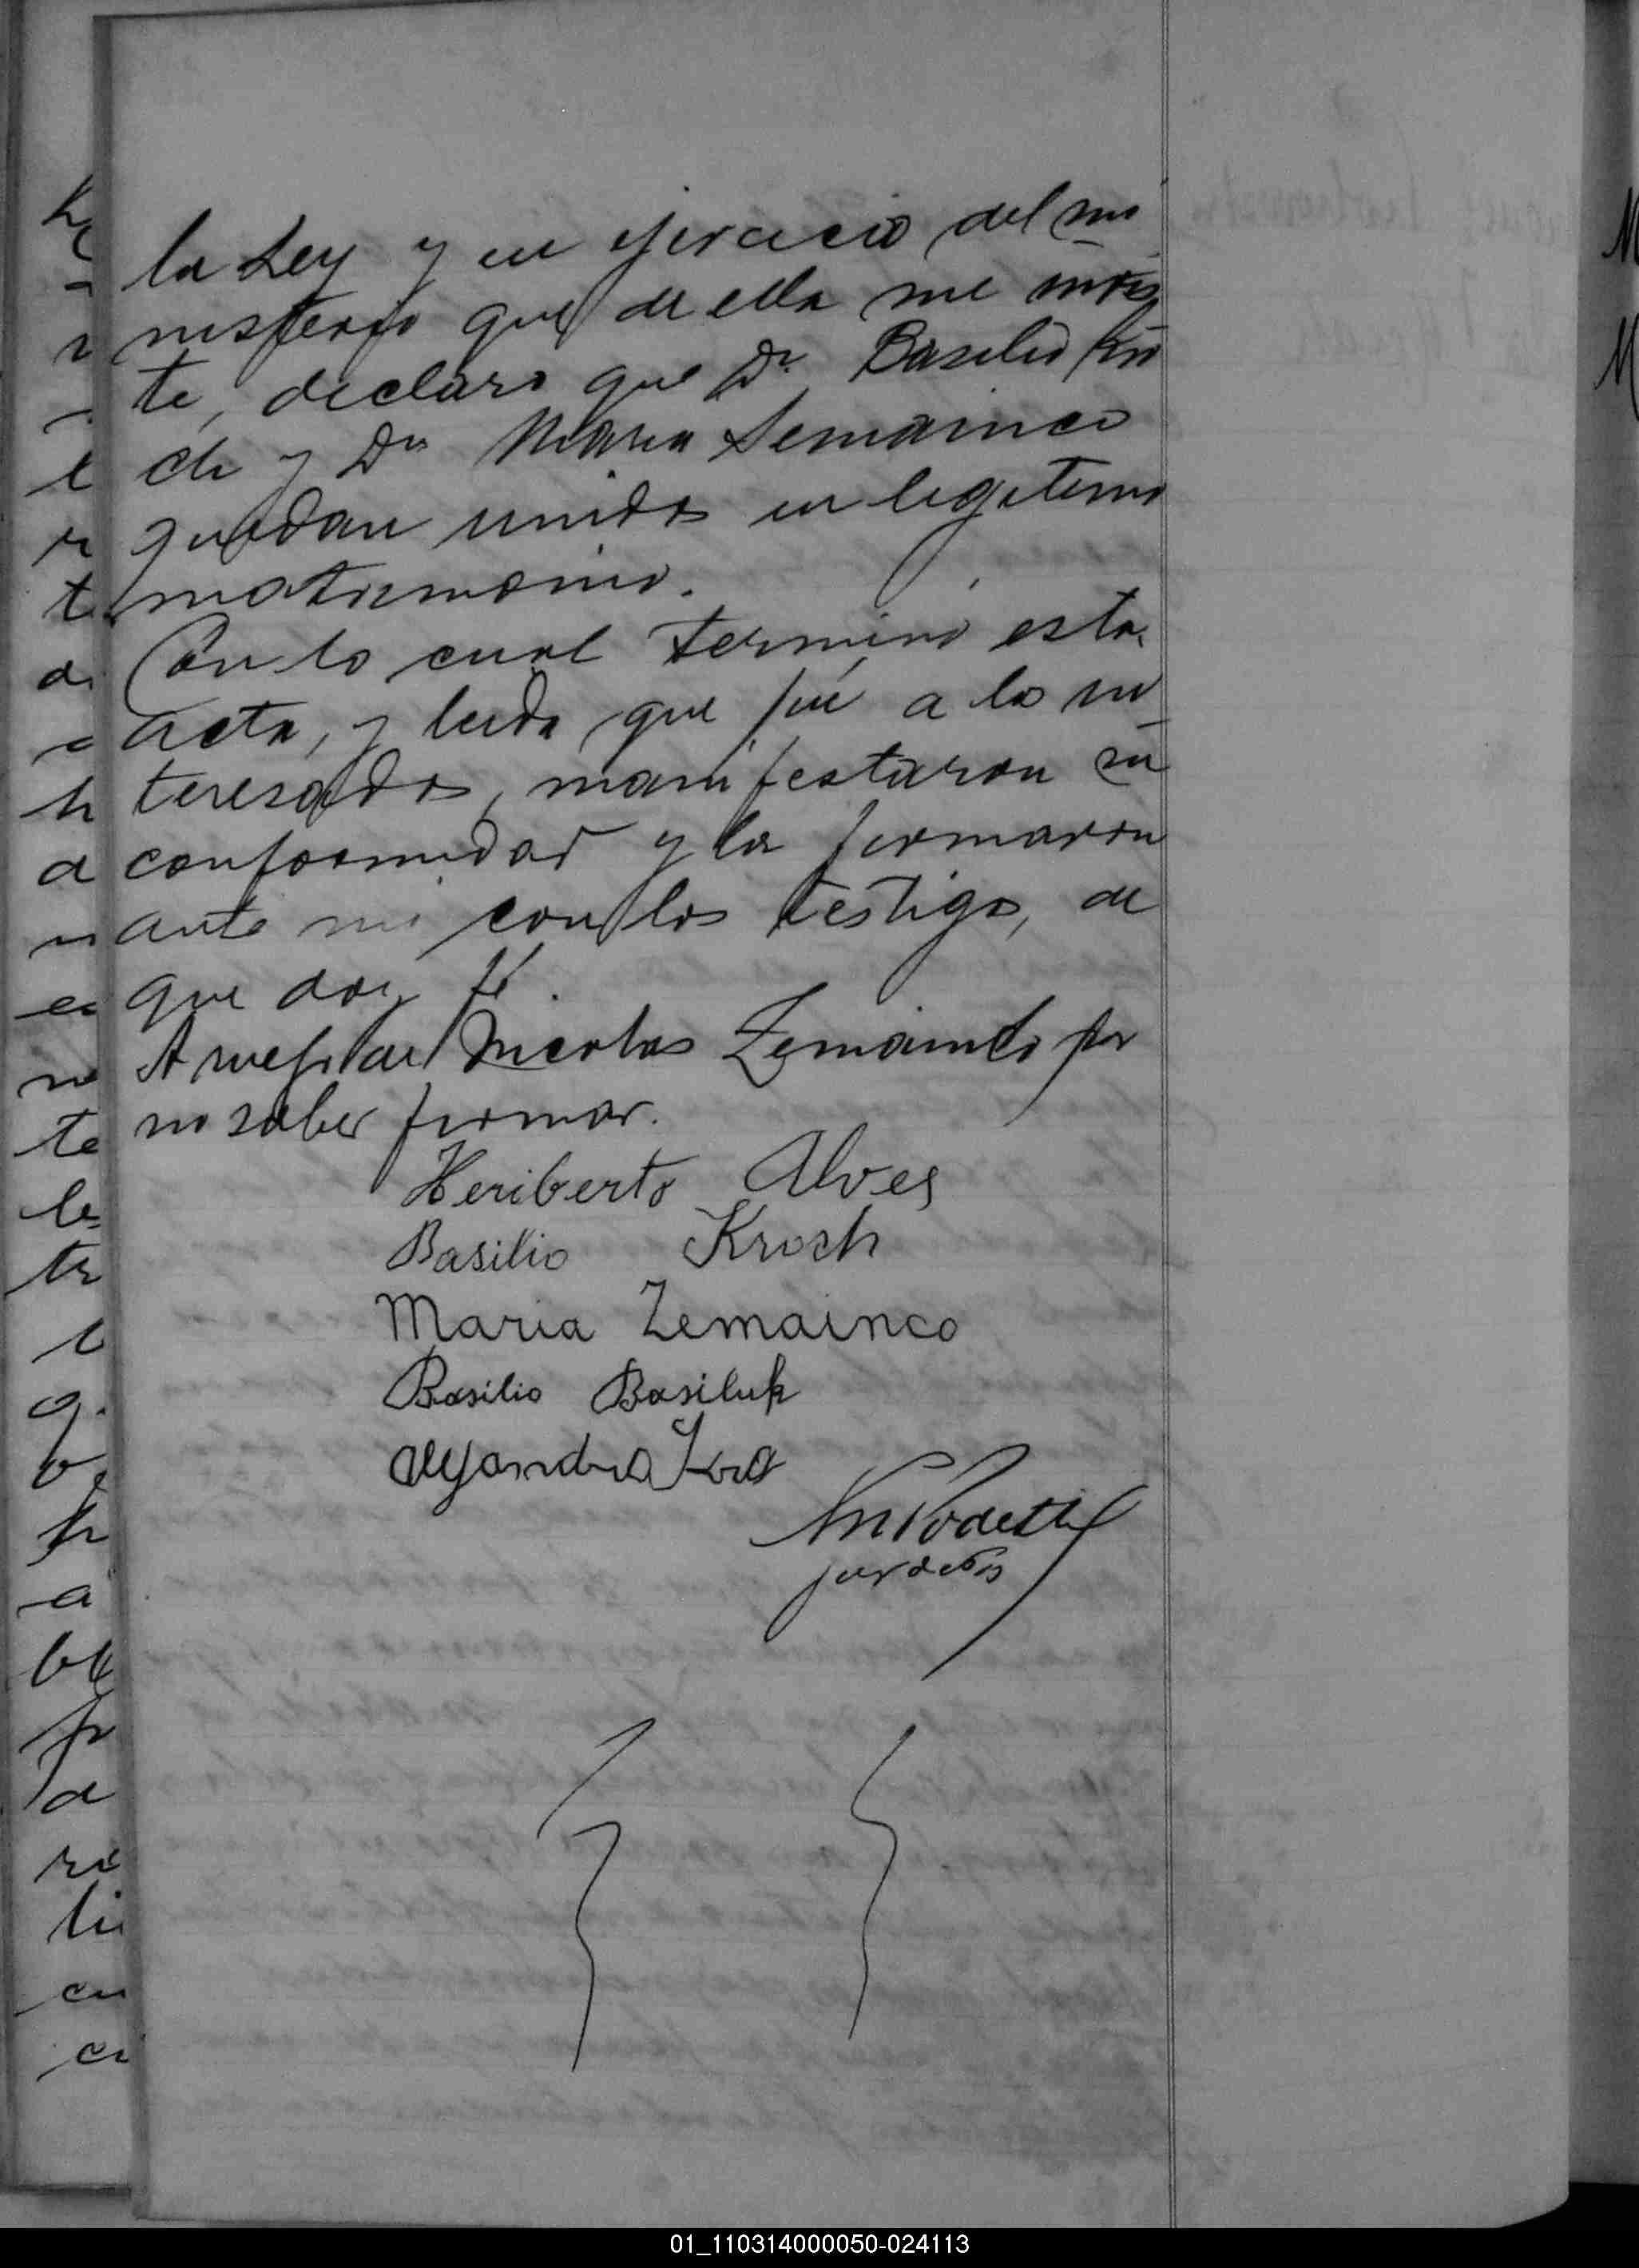 la Ley y en ejercicio del mi
nisterio que de ella me invis
te, declaro que Dn. Basilio Kro
ch y Da Maria Semainco
quedan unidos en legitimo
matrimonio.
Con lo cual terminó esta
acta, y leida que fué a los in
teresados, manifestaron su
conformidad y la firmaron
ante mi con los testigos, de
que doy fé.
A ruego de Nicolas Zemainco por
no saber firmar.
Heriberto Alves
Basilio Kroch
Maria Zemainco
Basilio Basiluk
Alejandro
Podestá
Juez de Paz
01_110314000050-024113